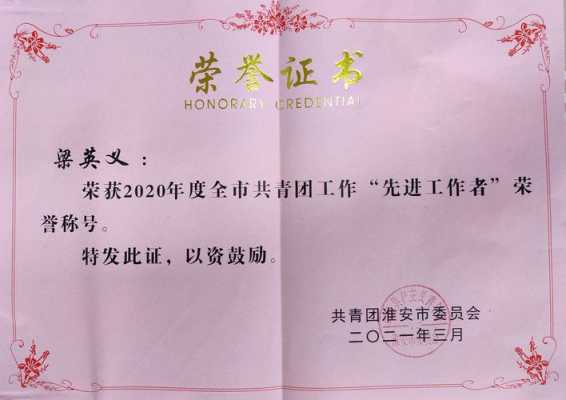 荣誉证书
HONORARY CREDENTIAL
梁英义：
荣获2020年度全市共青团工作“先进工作者”荣
誉称号。
特发此证，以资鼓励。
共青团淮安市委员会
二〇二一年三月